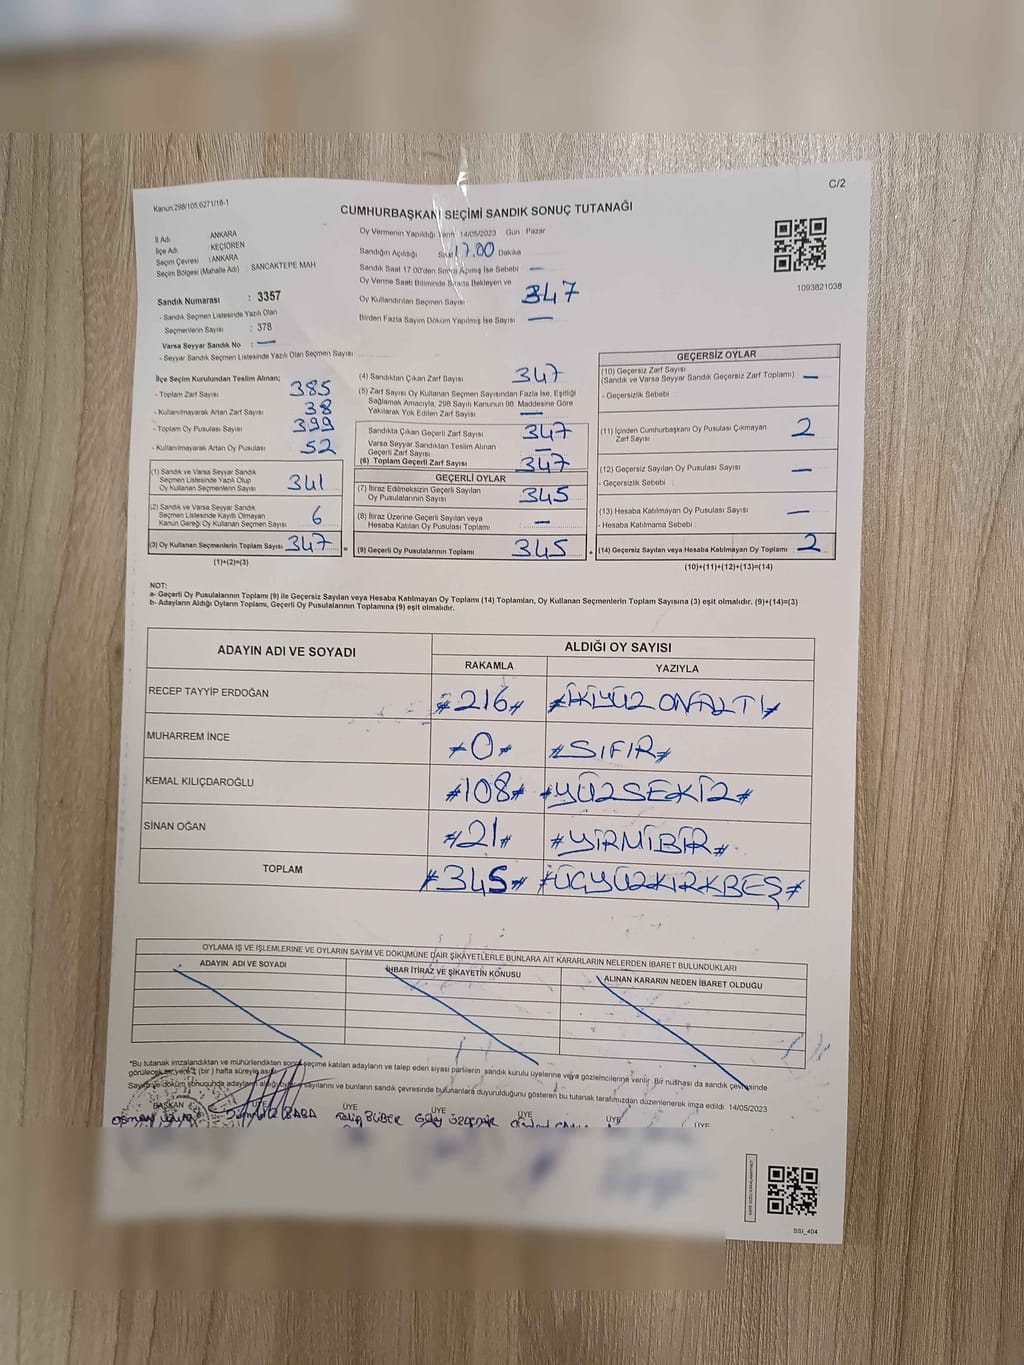 C/2
Kanun 298/105,6271/16-1
CUMHURBAŞKANI SEÇİMİ SANDIK SONUÇ TUTANAĞI
İl Adı : ANKARA
İlçe Adı : KEÇİÖREN
Seçim Çevresi : ANKARA
Seçim Bölgesi (Mahalle Adı) : SANCAKTEPE MAH
Sandık Numarası : 3357
- Sandık Seçmen Listesinde Yazılı Olan
Seçmenlerin Sayısı : 378
Varsa Seyyar Sandık No : —
- Seyyar Sandık Seçmen Listesinde Yazılı Olan Seçmen Sayısı
Oy Vermenin Yapıldığı Tarih 14/05/2023 Gün : Pazar
Sandığın Açıldığı Saat 17.00 Dakika
Sandık Saat 17.00'den Sonra Açılmış İse Sebebi —
Oy Verme Saati Bitiminde Sırada Bekleyen ve
Oy Kullandırılan Seçmen Sayısı 347
Birden Fazla Sayım Döküm Yapılmış İse Sayısı —
1093821038
İlçe Seçim Kurulundan Teslim Alınan;
- Toplam Zarf Sayısı 385
- Kullanılmayarak Artan Zarf Sayısı 38
- Toplam Oy Pusulası Sayısı 399
- Kullanılmayarak Artan Oy Pusulası 52
(1) Sandık ve Varsa Seyyar Sandık
Seçmen Listesinde Yazılı Olup
Oy Kullanan Seçmenlerin Sayısı 341
(2) Sandık ve Varsa Seyyar Sandık
Seçmen Listesinde Kayıtlı Olmayan
Kanun Gereği Oy Kullanan Seçmen Sayısı 6
(3) Oy Kullanan Seçmenlerin Toplam Sayısı 347
(1)+(2)=(3)
(4) Sandıktan Çıkan Zarf Sayısı 347
(5) Zarf Sayısı Oy Kullanan Seçmen Sayısından Fazla İse, Eşitliği
Sağlamak Amacıyla, 298 Sayılı Kanunun 98. Maddesine Göre
Yakılarak Yok Edilen Zarf Sayısı —
Sandıkta Çıkan Geçerli Zarf Sayısı 347
Varsa Seyyar Sandıktan Teslim Alınan
Geçerli Zarf Sayısı —
(6) Toplam Geçerli Zarf Sayısı 347
GEÇERLİ OYLAR
(7) İtiraz Edilmeksizin Geçerli Sayılan
Oy Pusulalarının Sayısı 345
(8) İtiraz Üzerine Geçerli Sayılan veya
Hesaba Katılan Oy Pusulası Toplamı : —
(9) Geçerli Oy Pusulalarının Toplamı 345
GEÇERSİZ OYLAR
(10) Geçersiz Zarf Sayısı
(Sandık ve Varsa Seyyar Sandık Geçersiz Zarf Toplamı) —
- Geçersizlik Sebebi :
(11) İçinden Cumhurbaşkanı Oy Pusulası Çıkmayan
Zarf Sayısı 2
(12) Geçersiz Sayılan Oy Pusulası Sayısı —
- Geçersizlik Sebebi :
(13) Hesaba Katılmayan Oy Pusulası Sayısı —
- Hesaba Katılmama Sebebi :
(14) Geçersiz Sayılan veya Hesaba Katılmayan Oy Toplamı : 2
(10)+(11)+(12)+(13)=(14)
NOT:
a- Geçerli Oy Pusulalarının Toplamı (9) ile Geçersiz Sayılan veya Hesaba Katılmayan Oy Toplamı (14) Toplamları, Oy Kullanan Seçmenlerin Toplam Sayısına (3) eşit olmalıdır. (9)+(14)=(3)
b- Adayların Aldığı Oyların Toplamı, Geçerli Oy Pusulalarının Toplamına (9) eşit olmalıdır.
ADAYIN ADI VE SOYADI ALDIĞI OY SAYISI
RAKAMLA YAZIYLA
RECEP TAYYİP ERDOĞAN #216# #İKİYÜZONALTI#
MUHARREM İNCE #0# #SIFIR#
KEMAL KILIÇDAROĞLU #108# #YÜZSEKİZ#
SİNAN OĞAN #21# #YİRMİBİR#
TOPLAM #345# #ÜÇYÜZKIRKBEŞ#
OYLAMA İŞ VE İŞLEMLERİNE VE OYLARIN SAYIM VE DÖKÜMÜNE DAİR ŞİKAYETLERLE BUNLARA AİT KARARLARIN NELERDEN İBARET BULUNDUKLARI
ADAYIN ADI VE SOYADI İHBAR İTİRAZ VE ŞİKAYETİN KONUSU ALINAN KARARIN NEDEN İBARET OLDUĞU
*Bu tutanak imzalandıktan ve mühürlendikten sonra seçime katılan adayların ve talep eden siyasi partilerin sandık kurulu üyelerine veya gözlemcilerine verilir. Bir nüshası da sandık çevresinde
görülecek bir yere 1 (bir) hafta süreyle asılır
Sayım ve döküm sonucunda adayların aldığı oyların sayılarını ve bunların sandık çevresinde bulunanlara duyurulduğunu gösteren bu tutanak tarafımızdan düzenlenerek imza edildi 14/05/2023
BAŞKAN ÜYE ÜYE ÜYE ÜYE ÜYE ÜYE
BÜBER
SSI_404